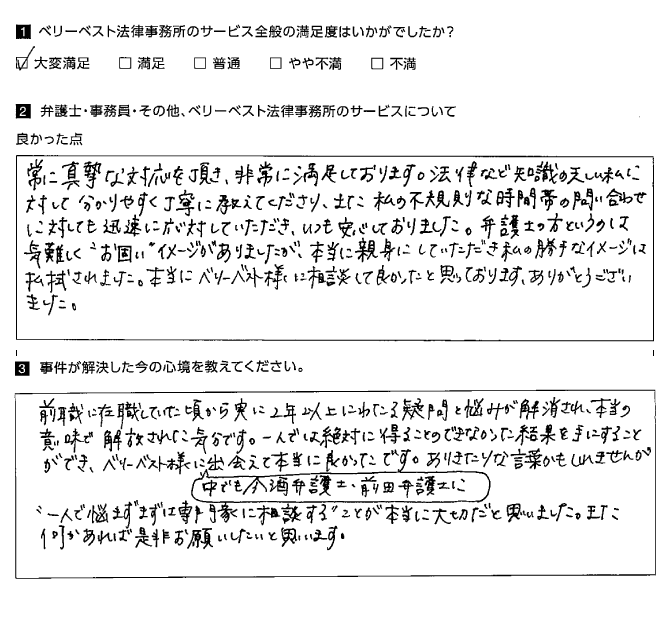 1 ベリーベスト法律事務所のサービス全般の満足度はいかがでしたか？
☑ 大変満足 □ 満足 □ 普通 □ やや不満 □ 不満
2 弁護士・事務員・その他、ベリーベスト法律事務所のサービスについて
良かった点
常に真摯な対応を頂き、非常に満足しております。法律など知識の乏しい私に
対して分かりやすく丁寧に教えてくださり、また私の不規則な時間帯の問い合わせ
に対しても迅速に応対していただき、いつも安心しておりました。弁護士の方というのは
気難しく“お固い”イメージがありましたが、本当に親身にしていただき私の勝手なイメージは
払拭されました。本当にベリーベスト様に相談して良かったと思っております、ありがとうござい
ました。
3 事件が解決した今の心境を教えてください。
前職に在職していた頃から実に2年以上にわたる疑問と悩みが解消され、本当の
意味で解放された気分です。一人では絶対に得ることのできなかった結果を手にすること
ができ、ベリーベスト様に出会えて本当に良かったです。ありきたりな言葉かもしれませんが
中でも今酒弁護士・前田弁護士に
“一人で悩まずまずは専門家に相談する”ことが本当に大切だと思いました。また
何かあれば是非お願いしたいと思います。